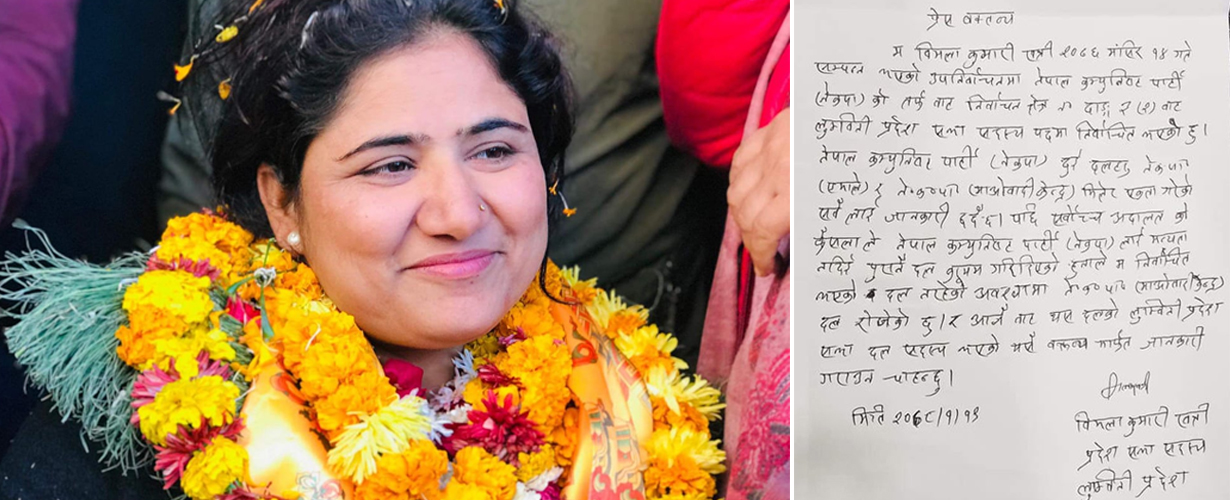 प्रेस वक्तव्य
म विमला कुमारी खत्री २०७६ मंसिर १४ गते
सम्पन्न भएको उपनिर्वाचनमा नेपाल कम्युनिस्ट पार्टी
(नेकपा) को तर्फ बाट निर्वाचन क्षेत्र नं दाङ्ग ३ (२) बाट
लुम्बिनी प्रदेश सभा सदस्य पदमा निर्वाचित भएको हु।
नेपाल कम्युनिस्ट पार्टी (नेकपा) दुई दलहरु नेकपा
(एमाले) र ने.क.पा (माओवादी केन्द्र) मिलेर एकता गरेको
सबै लाई जानकारी हुदैछ। पछि सर्वोच्च अदालत को
फैसला ले नेपाल कम्युनिस्ट पार्टी (नेकपा) लाई मान्यता
नदिई पुरानै दल कायम गरिदिएको हुनाले म निर्वाचित
भएको दल नरहेको अवस्थामा ने.क.पा (माओवादी केन्द्र)
दल रोजेको छु। र आजै बाट यस दलको लुम्बिनी प्रदेश
सभा दल सदस्य भएको यसै वक्तव्य मार्फत जानकारी
गराउन चाहन्छु।
मिति २०७८/१/१३
विमला कुमारी खत्री
प्रदेश सभा सदस्य
लुम्बिनी प्रदेश